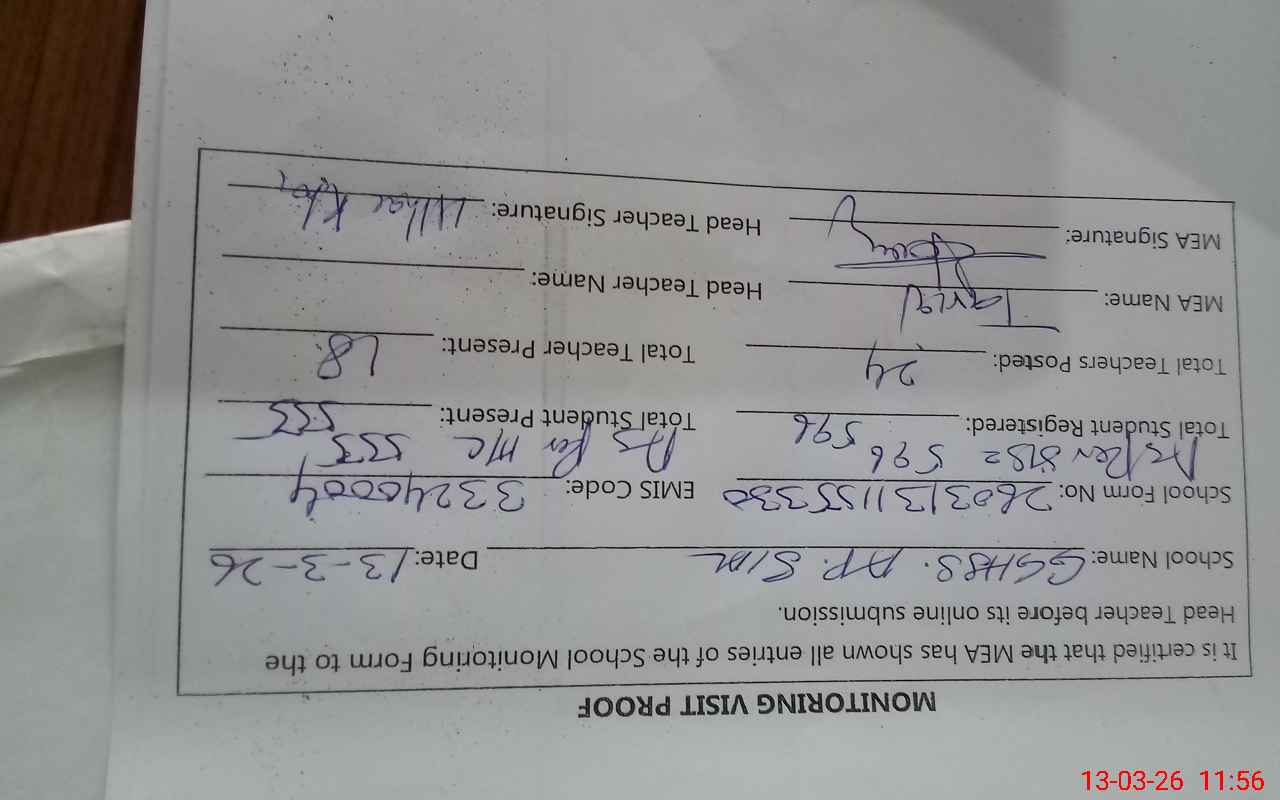 MONITORING VISIT PROOF
It is certified that the MEA has shown all entries of the School Monitoring Form to the
Head Teacher before its online submission.
School Name: GGHSS. AP. SIAL Date: 13-3-26
School Form No: 260313115533 EMIS Code: 33240004
As Per SIS= 596 As Per H/C 555
Total Student Registered: 596 Total Student Present: 555
Total Teachers Posted: 24 Total Teacher Present: 18
MEA Name: Tariq Head Teacher Name:
MEA Signature: Head Teacher Signature:
13-03-26 11:56